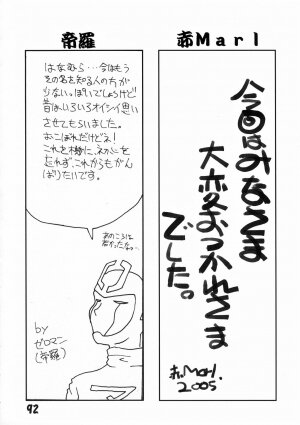 赤Marl
今回はみなさま
大変おつかれさま
でした。
赤Marl.
2005
帝羅
はなむら…今はもう
その名を知る人の方が
少ないっぽいでしょうけど
昔はいろいろオイシイ思い
させてもらいました。
おこぼれだけどネ!
これを機に、初心を
忘れず、これからもがん
ばりたいです。
あのころは
若かったな…
by
ゼロマン
(帝羅)
92